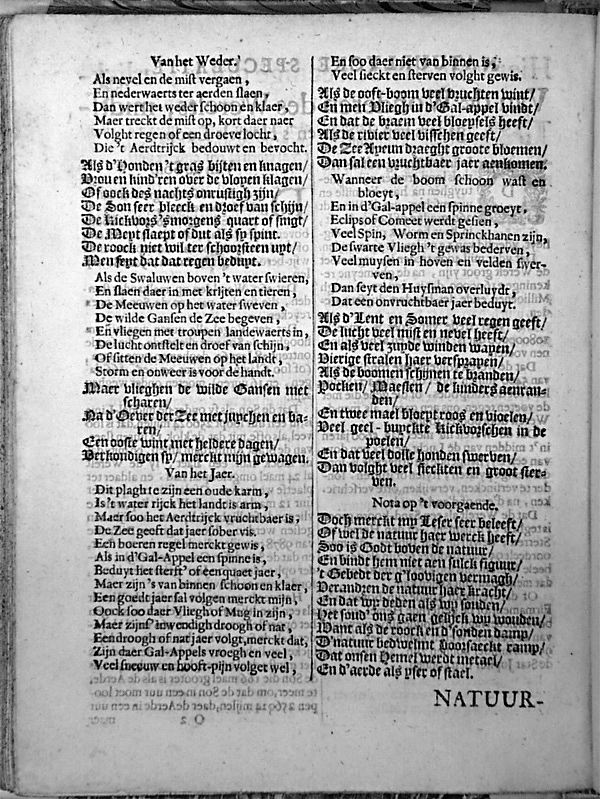 Van het Weder.
Als nevel en de mist vergaen,
En nederwaerts ter aerden slaen,
Dan wert het weder schoon en klaer,
Maer treckt de mist op, kort daer naer
Volght regen of een droeve locht,
Die 't Aerdtrijck bedouwt en bevocht.
Als d'Honden 't gras bijten en knagen/
Vrou en kind'ren over de vloyen klagen/
Of oock des nachts onrustigh zijn/
De Son seer bleeck en droef van schijn/
De Kickvors 's morgens quart of singt/
De Meyt slaept of dut als sy spint.
De roock niet wil ter schoorsteen uyt/
Men seyt dat dat regen beduyt.
Als de Swaluwen boven 't water swieren,
En slaen daer in met krijten en tieren,
De Meeuwen op het water sweven,
De wilde Gansen de Zee begeven,
En vliegen met troupen landewaerts in,
De lucht ontstelt en droef van schijn,
Of sitten de Meeuwen op het landt,
Storm en onweer is voor de handt.
Maer vlieghen de wilde Gansen met
scharen/
Na d'Oever der Zee met juychen en ba-
ren/
Een ooste wint met heldere dagen/
Verkondigen sy/ merckt mijn gewagen.
Van het Jaer.
Dit plagh te zijn een oude karm,
Is 't water rijck het landt is arm,
Maer soo het Aerdtrijck vruchtbaer is,
De Zee geeft dat jaer sober vis.
Een boeren regel merckt gewis,
Als in d'Gal-Appel een spinne is,
Beduyt het sterft' of een quaet jaer,
Maer zijn 's van binnen schoon en klaer,
Een goedt jaer sal volgen merckt mijn,
Oock soo daer Vliegh of Mug in zijn,
Maer zijns' inwendigh droogh of nat,
Een droogh of nat jaer volgt, merckt dat,
Zijn daer Gal-Appels vroegh en veel,
Veel sneeuw en hooft-pijn volget wel,
En soo daer niet van binnen is,
Veel sieckt en sterven volght gewis.
Als de ooft-boom veel vruchten wint/
En men Vliegh in d'Gal-appel vindt/
En dat de braem veel bloeysels heeft/
Als de rivier veel visschen geeft/
De Zee Ayeun draeght groote bloemen/
Dan sal een vruchtbaer jaer aenkomen.
Wanneer de boom schoon wast en
bloeyt,
En in d'Gal-appel een spinne groeyt,
Eclips of Comeet werdt gesien,
Veel Spin, Worm en Sprinckhanen zijn,
De swarte Vliegh 't gewas bederven,
Veel muysen in hoven en velden swer-
ven,
Dan seyt den Huysman overluydt,
Dat een onvruchtbaer jaer beduyt.
Als d'Lent en Somer veel regen geeft/
De lucht veel mist en nevel heeft/
En als veel zuyde winden wayen/
Vierige stralen haer versprayen/
Als de boomen schijnen te branden/
Pocken/ Maeslen/ de kinders aenran-
den/
En twee mael bloeyt roos en violen/
Veel geel-buyckte Kickvorschen in de
poelen/
En dat veel dolle honden swerven/
Dan volght veel sieckten en groot ster-
ven.
Nota op 't voorgaende.
Doch merckt my Leser seer beleeft/
Of wel de natuur haer werck heeft/
Soo is Godt boven de natuur/
En binde hem niet aen sulck figuur/
't Gebedt der g'loovigen vermagh/
Verandren de natuur haer kracht/
En dat wy deden als wy souden/
Het soud' ons gaen gelijck wy wouden/
Want als de roock en d'sonden damp/
D'natuur bedwelmt/ voorsaeckt ramp/
Dat onsen Hemel werdt metael/
En d'aerde als yser of stael.
NATUUR-